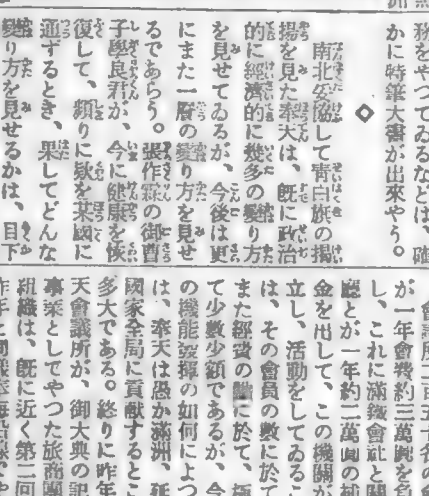 務をやつてゐるなどは、確
かに特筆大書が出來やう。
◇
南北妥協して靑白旗の揭
揚を見た奉天は、既に政治
的に經濟的に幾多の變り方
を見せてゐるが、今後は更
にまた一層の變り方を見せ
るであらう。張作霖の御曹
子學良君が、今に健康を恢
復して、頻りに欵を某國に
通ずるとき、果してどんな
變り方を見せるかは、目下
會議所二百五十名の
が一年會費約三萬圓を
し、これに滿鐵會社と關
廳とが一年約二萬圓の補
金を出して、この機關が
立し、活動をしてゐるこ
は、その會員の數に於て
また經費の點に於て、極
て少數少額であるが、今
の機能發揮の如何によつ
は、奉天は愚か滿洲、延
國家全局に貢献するとこ
多大である。終りに昨年
天會議所が、御大典の記
事業としてやつた旅商團
組織は、既に近く第二回